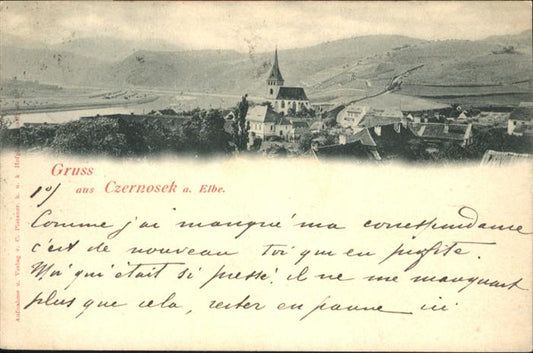 Gruss
aus Czernosek a. Elbe.
10/
Comme j'ai manqué ma correspondance
c'est de nouveau toi qui en profite.
Moi qui était si pressé. il ne me manquait
plus que cela, rester en panne ici
Aufnahme u. Verlag v. C. Pietzner, k. u. k.